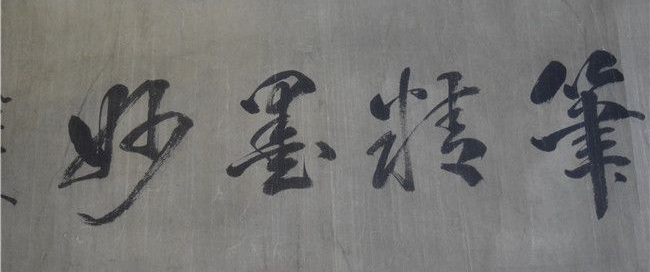 筆精墨妙